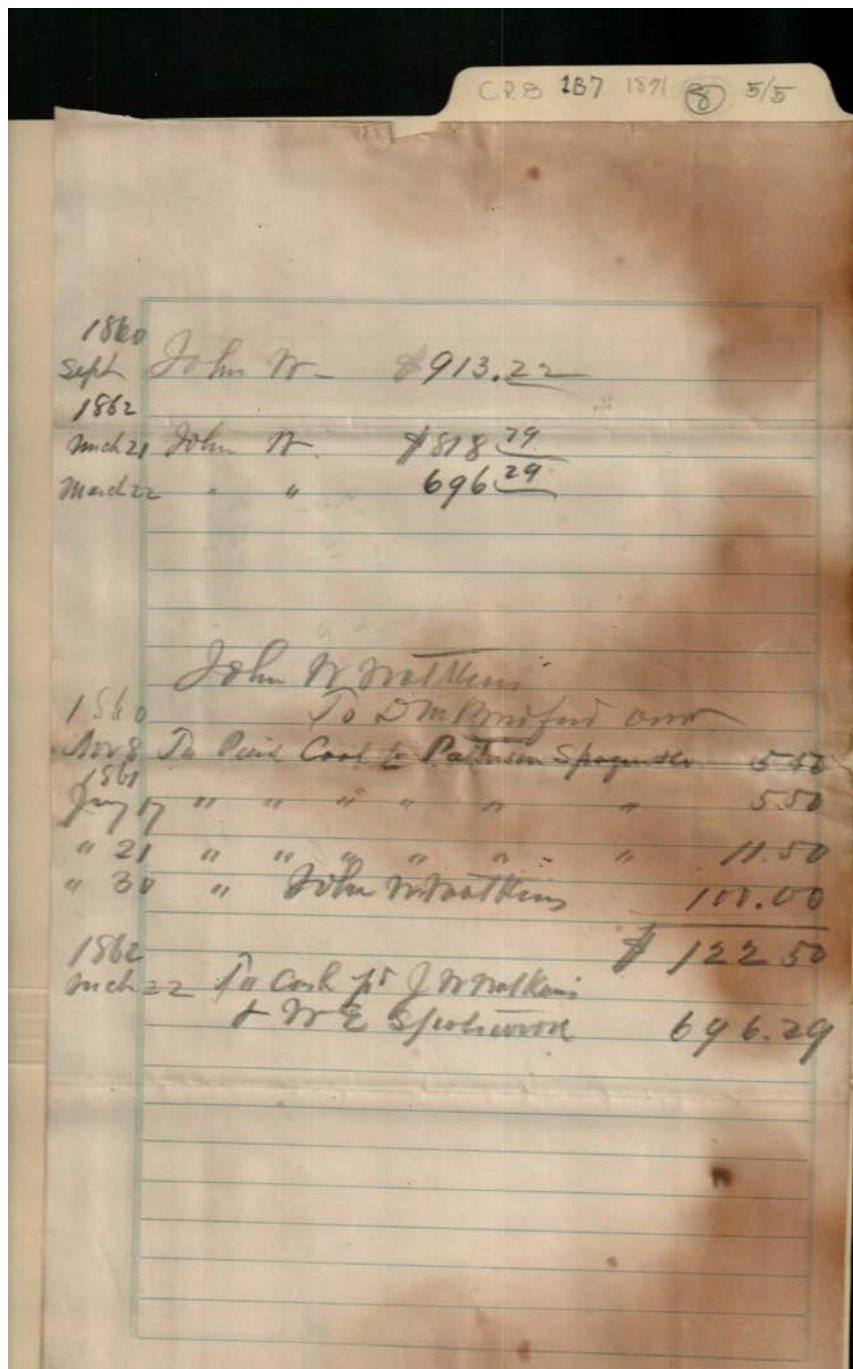 CRB 1B7 1871 8 5/5
1860
Sept John W- $913.22
1862
Mch 21 John W. $818 79
March 22 " " 696 29
John W Watkins
1860 To D M
Nov 8 To Paid Cash to Patterson 5.50
1861
Jany 17 " " " " " " 5.50
" 21 " " " " " " 11.50
" 30 " John W Watkins 100.00
$ 122 50
1862
Mch 22 To Cash pd J W Watkins
& W E 696.29